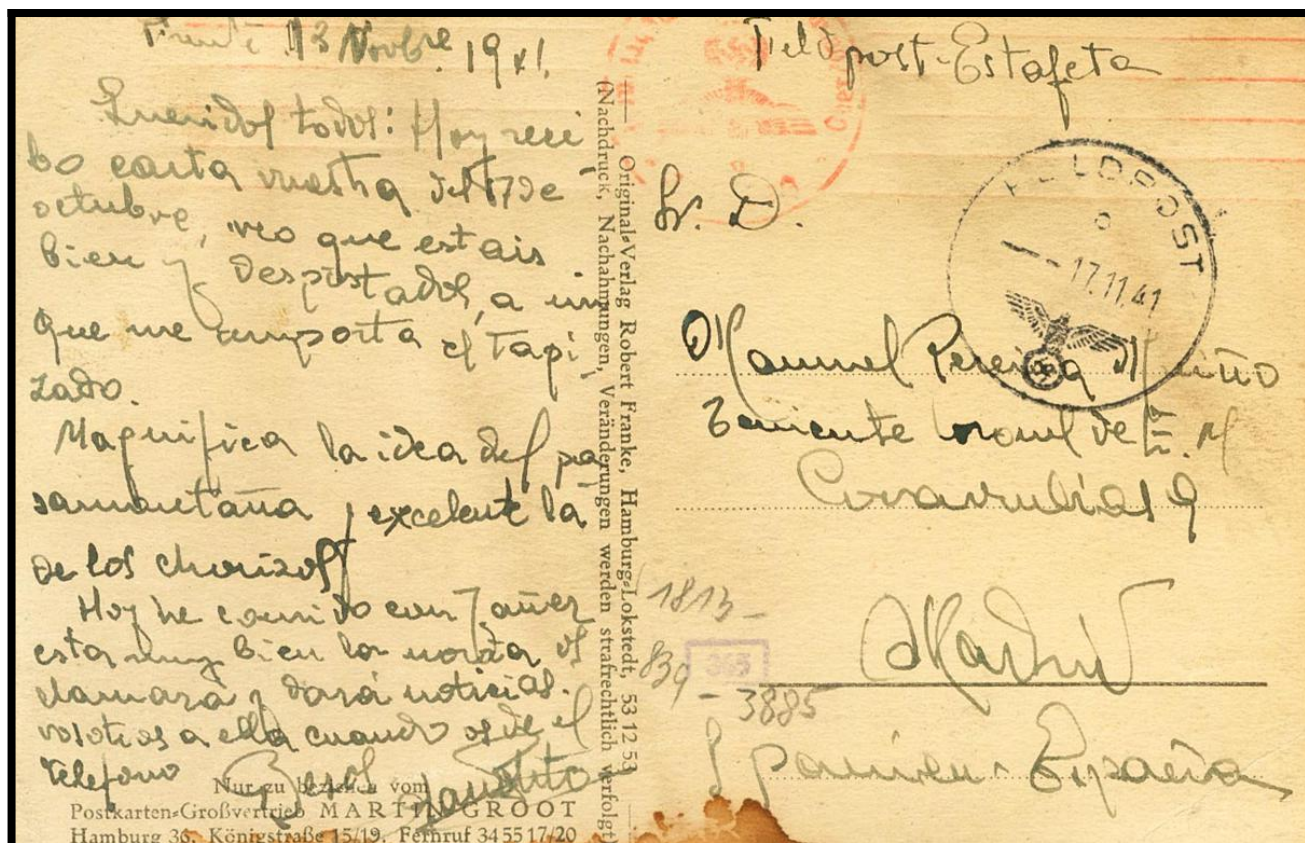 13 Novbre 1941.
Queridos todos: Hoy reci
bo carta vuestra del 17 de
octubre, veo que estais
bien y despistados, a mi
que me importa el tapi
zado.
Magnifica la idea del pa
samontaña y excelente la
de los chorizos
Hoy he comido con Javier
esta muy bien la novia os
llamará y dará noticias.
vosotros a ella cuando os de el
telefono
Besos
Nur zu beziehen vom
Postkarten-Großvertrieb MARTIN GROOT
Hamburg 36, Königstraße 15/19, Fernruf 34 55 17/20
Original-Verlag Robert Franke, Hamburg-Lokstedt, 53 12 53
(Nachdruck, Nachahmungen, Veränderungen werden strafrechtlich verfolgt)
Feldpost-Estafeta
FELDPOST
17.11.41
Sr. D.
Manuel Pereira Muiño
Teniente Coronel de E. M
Covarrubias 9
1813-
839
363
- 3885
Madrid
Spanien - España